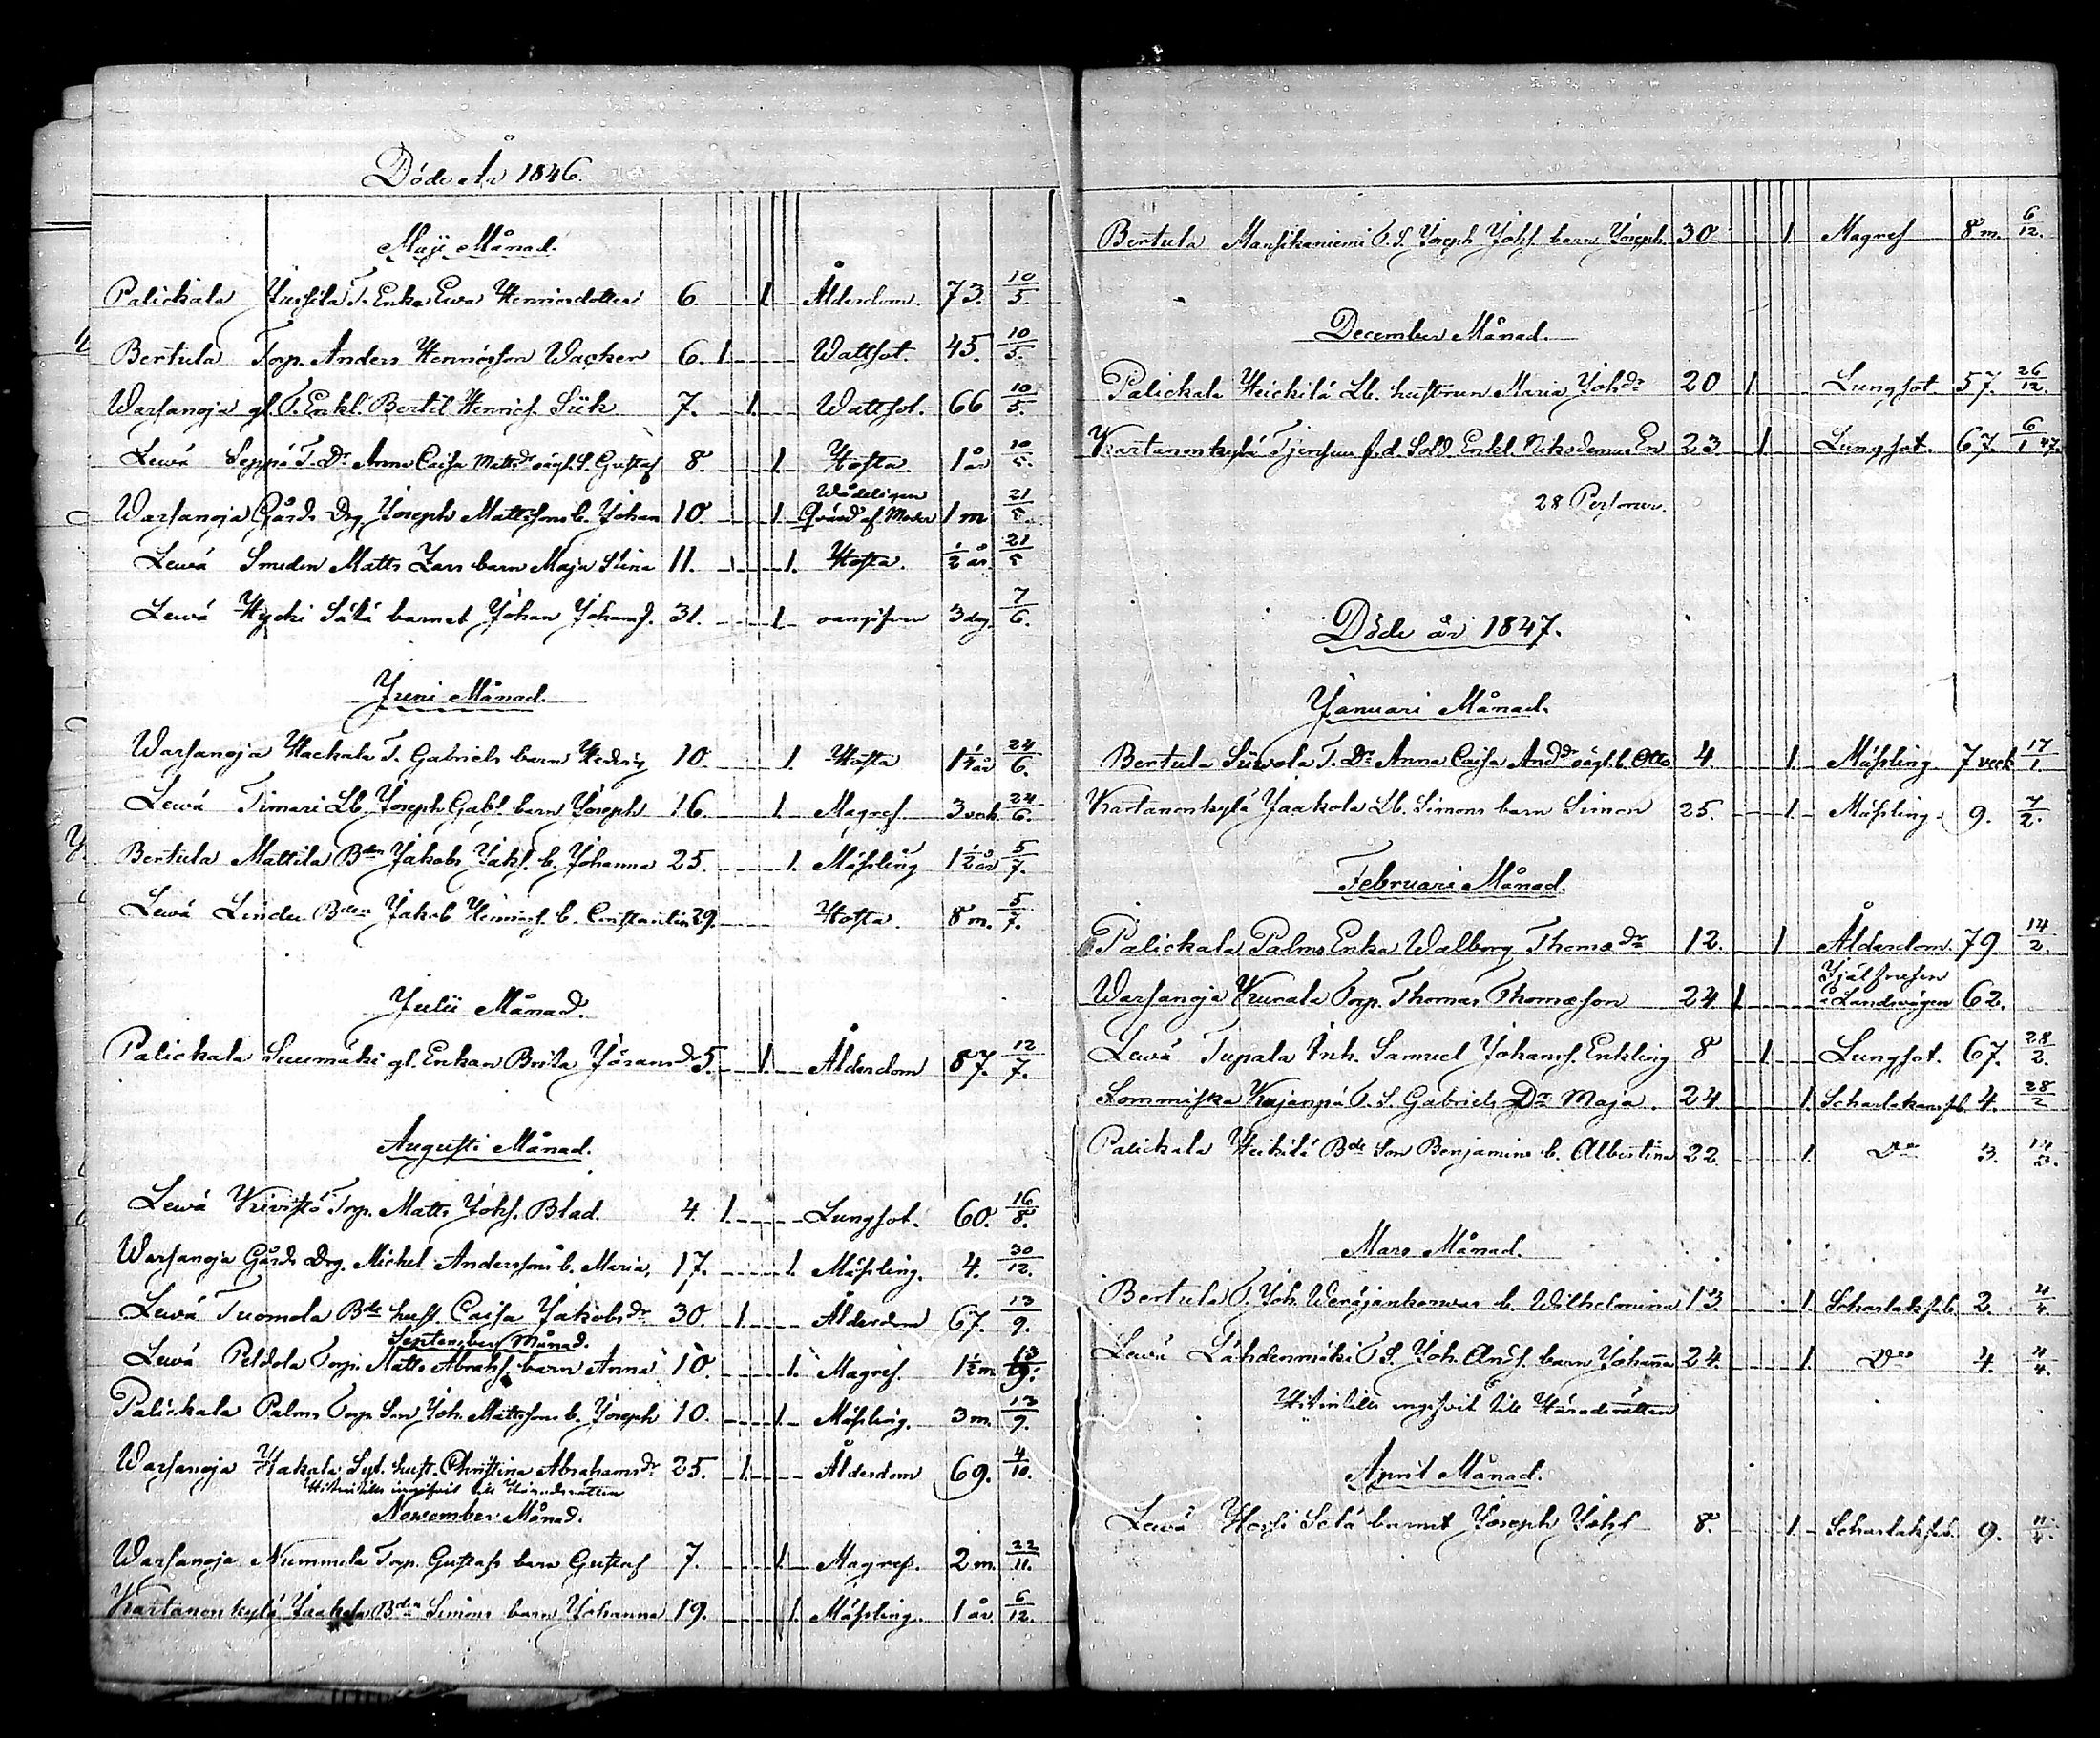 Döde År 1846.
Maji Månad.
Palickala Jussila T. Enka Ewa Henricsdotter 6. 1 Ålderdom 73. 10/5.
Bertula Torp. Anders Henricsson Wacker 6. 1. Wattsot. 45. 10/5.
Warsanoja gl. T. Enkl. Bertil Henrics. Siik 7. 1. Wattsot. 66 10/5.
Lewä Seppä T. Dr Anna Caisa Mattsdr oägt. S. Gustaf 8. 1 Hosta. 1 år 10/5.
Wådeligen
Warsanoja Gårds Drg Joseph Mattssons b. Johan 10. 1 qväfd af Moder 1 m 21/5.
Lewä Smeden Matts Lars barn Maja Stina 11. 1. Hosta. 1/2 år 21/5
Lewä Hycki Sälä barnet Johan Johans. 31. 1 oangifven 3 dag. 7/6.
Juni Månad.
Warsanoja Hackala T. Gabriels barn Hedvig 10. 1. Hosta 1 1/4 år 24/6.
Lewä Timari Lb. Joseph Gabl. barn Joseph 16. 1. Magref. 3 veck. 24/6.
Bertula Mattila Bden Jakobs Jaks. b. Johanna 25. 1. Mässling 1 1/2 år 5/7.
Lewä Lindu Bden Jakob Henrics. b. Constantin 29. Hosta. 8 m. 5/7.
Julii Månad.
Palickala Suumäki gl. Enkan Brita Jörans Dr 5. 1. Ålderdom 87. 12/7.
Augusti Månad.
Lewä Kivistö Torp. Matts Johs. Blad. 4. 1. Lungsot. 60. 16/8.
Warsanoja Gårds Drg. Michel Anderssons b. Maria, 17. 1. Mässling. 4. 30/12.
Lewä Tuomola Bde hust. Caisa Jakobsdr 30. 1. Ålderdom 67. 13/9.
September Månad.
Lewä Peldola Torp. Matts Abrahs. barn Anna 10. 1. Magref. 1 1/2 m 13/9.
Palickala Palms Torp. Son Joh. Mattssons b. Joseph 10. 1. Mässling. 3 m. 13/9.
Warsanoja Hakala Syt. hust. Christina Abrahamsdr 25. 1. Ålderdom 69. 4/10.
Hitintills ingifvit till Häradsrätten
November Månad.
Warsanoja Nummela Torp. Gustafs barn Gustaf 7. 1. Magref. 2 m. 22/11.
Kartanonkylä Jaakola Bden Simons barn Johanna 19. 1. Mässling. 1 år. 6/12.
Bertula Mansikaniemi T. S. Joseph Johs. barn Joseph 30 1. Magref 8 m. 6/12.
December Månad.
Palickala Heickilä Lb. hustrun Maria Johdr 20 1. Lungsot. 57. 26/12.
Kartanonkylä f. d. Sold. Enkl. Nikodemus En 23 1. Lungsot. 67. 6/1 47.
28 Personer.
Döde år 1847.
Januari Månad.
Bertula Siivola T. Dr Anna Caisa Anddr oägt. b. Otto 4. 1. Mässling 7 veck 17/1.
Kartanonkylä Jaakola Lb. Simons barn Simon 25. 1. Mässling. 9. 7/2.
Februari Månad.
Palickala Palms Enka Walborg Thomædr 12. 1 Ålderdom. 79. 14/2.
Ihjälfrusen
Warsanoja Kurala Torp. Thomas Thomasson 24 1 å Landsvägen 62.
Lewä Tupala Inh. Samuel Johans. Enkling 8 1. Lungsot. 67. 28/2.
Kojanpä T. S. Gabriels Dr Maja. 24 1. Scharlakansfeb. 4. 28/2
Palickala Heikilä Bde Son Benjamins b. Albertina 22. 1. Do 3. 14/3.
Mars Månad.
Bertula T. Joh. b. Wilhelmina 13. 1. Scharlaksfeb. 2. 4/4.
Lewä Lähdenmäki T. S. Joh. Ands. barn Johanna 24. 1. Do 4. 4/4.
Hitintills ingifvit till Häradsrätten
April Månad.
Lewä barnet Joseph Johs 8. 1. Scharlaksfeb. 9. 11/4.